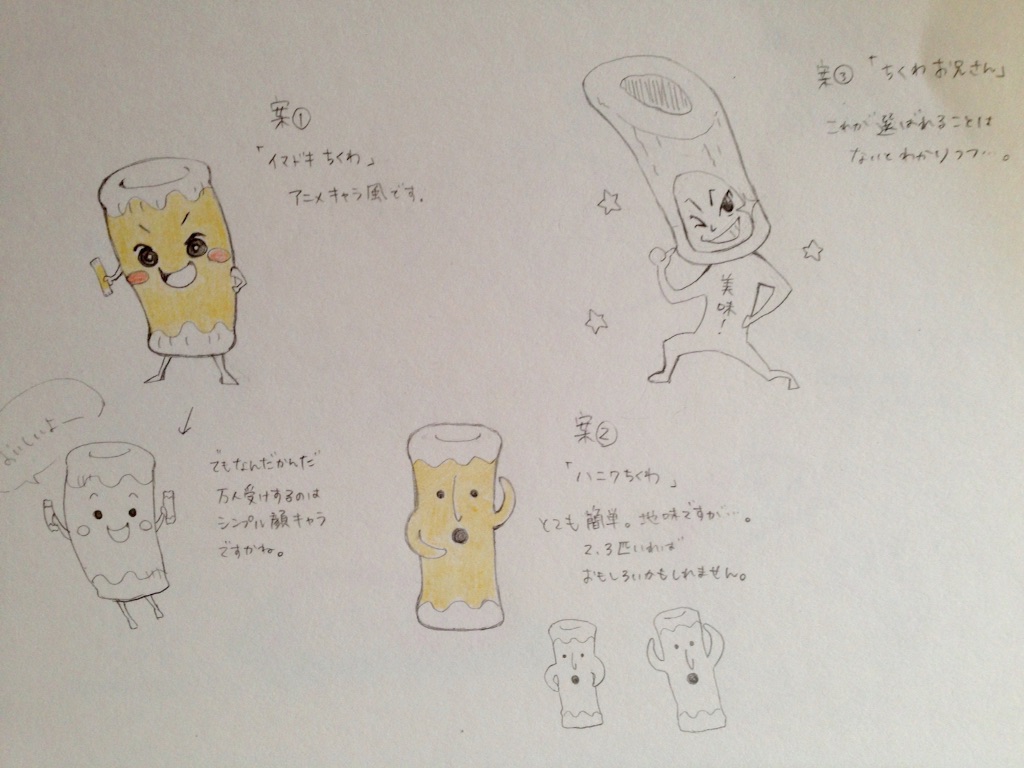 案①
「イマドキちくわ」
アニメキャラ風です。
おいしいよー
でもなんだかんだ
万人受けするのは
シンプル顔キャラ
ですかね。
案②
「ハニワちくわ」
とても簡単。地味ですが…。
2.3匹いれば
おもしろいかもしれません。
案③「ちくわお兄さん」
これが選ばれることは
ないとわかりつつ…。
美味!